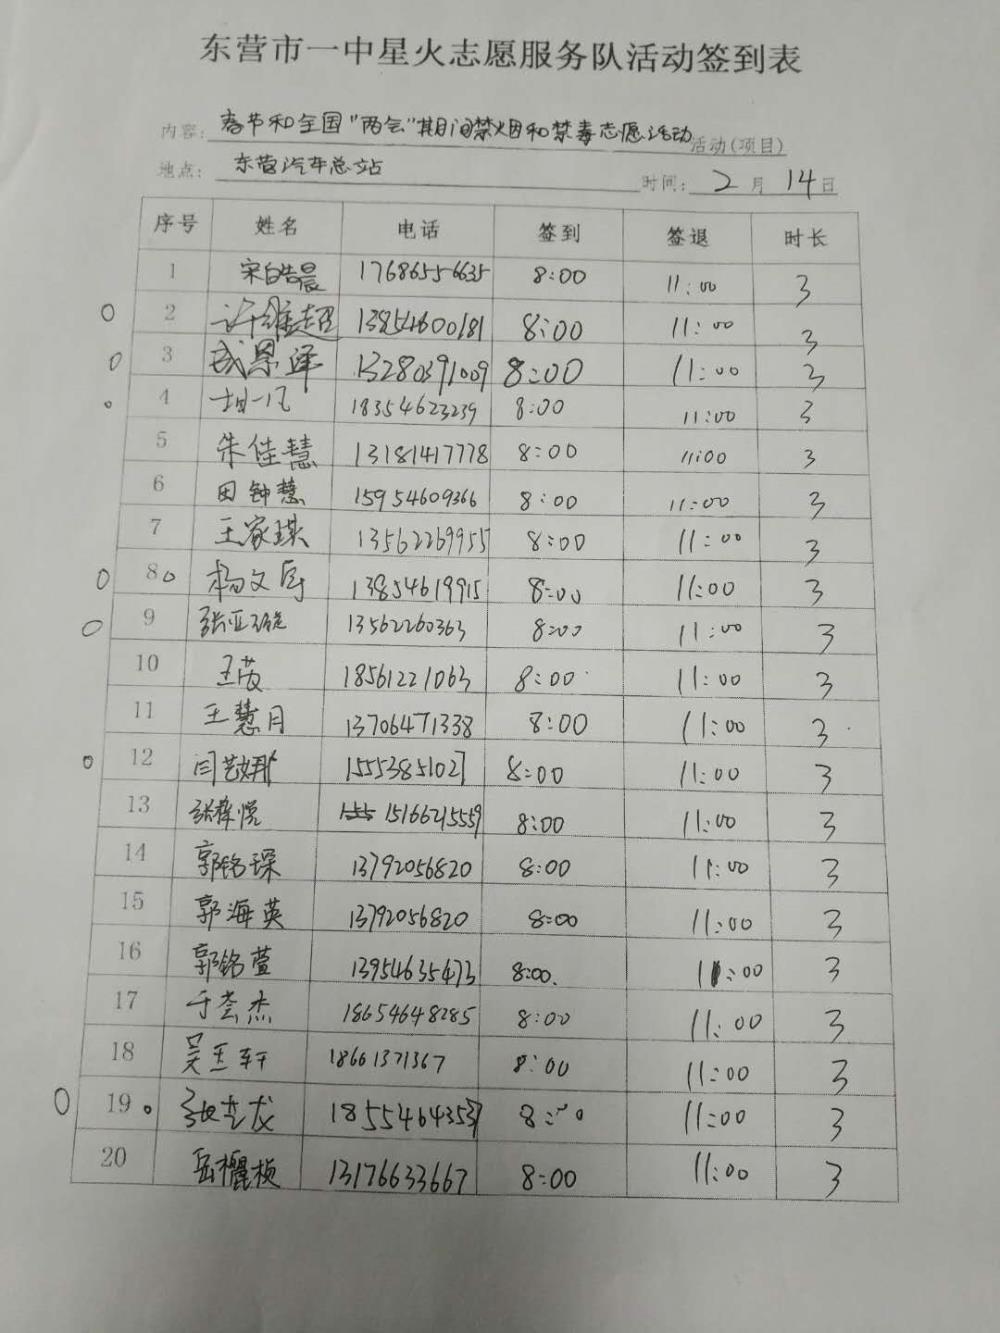 东营市一中星火志愿服务队活动签到表
内容: 春节和全国"两会"期间禁烟和禁毒志愿活动 活动(项目)
地点: 东营汽车总站 时间: 2月14日
序号 姓名 电话 签到 签退 时长
1 宋皓晨 17686556635 8:00 11:00 3
2 许维超 13854600181 8:00 11:00 3
3 成恩泽 13280391009 8:00 11:00 3
4 一凡 18354623239 8:00 11:00 3
5 朱佳慧 13181417778 8:00 11:00 3
6 田钟慧 15954609366 8:00 11:00 3
7 王家琪 13562269955 8:00 11:00 3
8 杨文 13854619915 8:00 11:00 3
9 张亚璇 13562260363 8:00 11:00 3
10 王茵 18561221063 8:00 11:00 3
11 王慧月 13706471338 8:00 11:00 3
12 闫艺娜 15553851027 8:00 11:00 3
13 张悦 15166215559 8:00 11:00 3
14 郭铭琛 13792056820 8:00 11:00 3
15 郭海英 13792056820 8:00 11:00 3
16 郭铭萱 13954635473 8:00 11:00 3
17 于杰 18654648285 8:00 11:00 3
18 吴玉轩 18661371367 8:00 11:00 3
19 龙 8:00 11:00 3
20 岳桢 13176633667 8:00 11:00 3